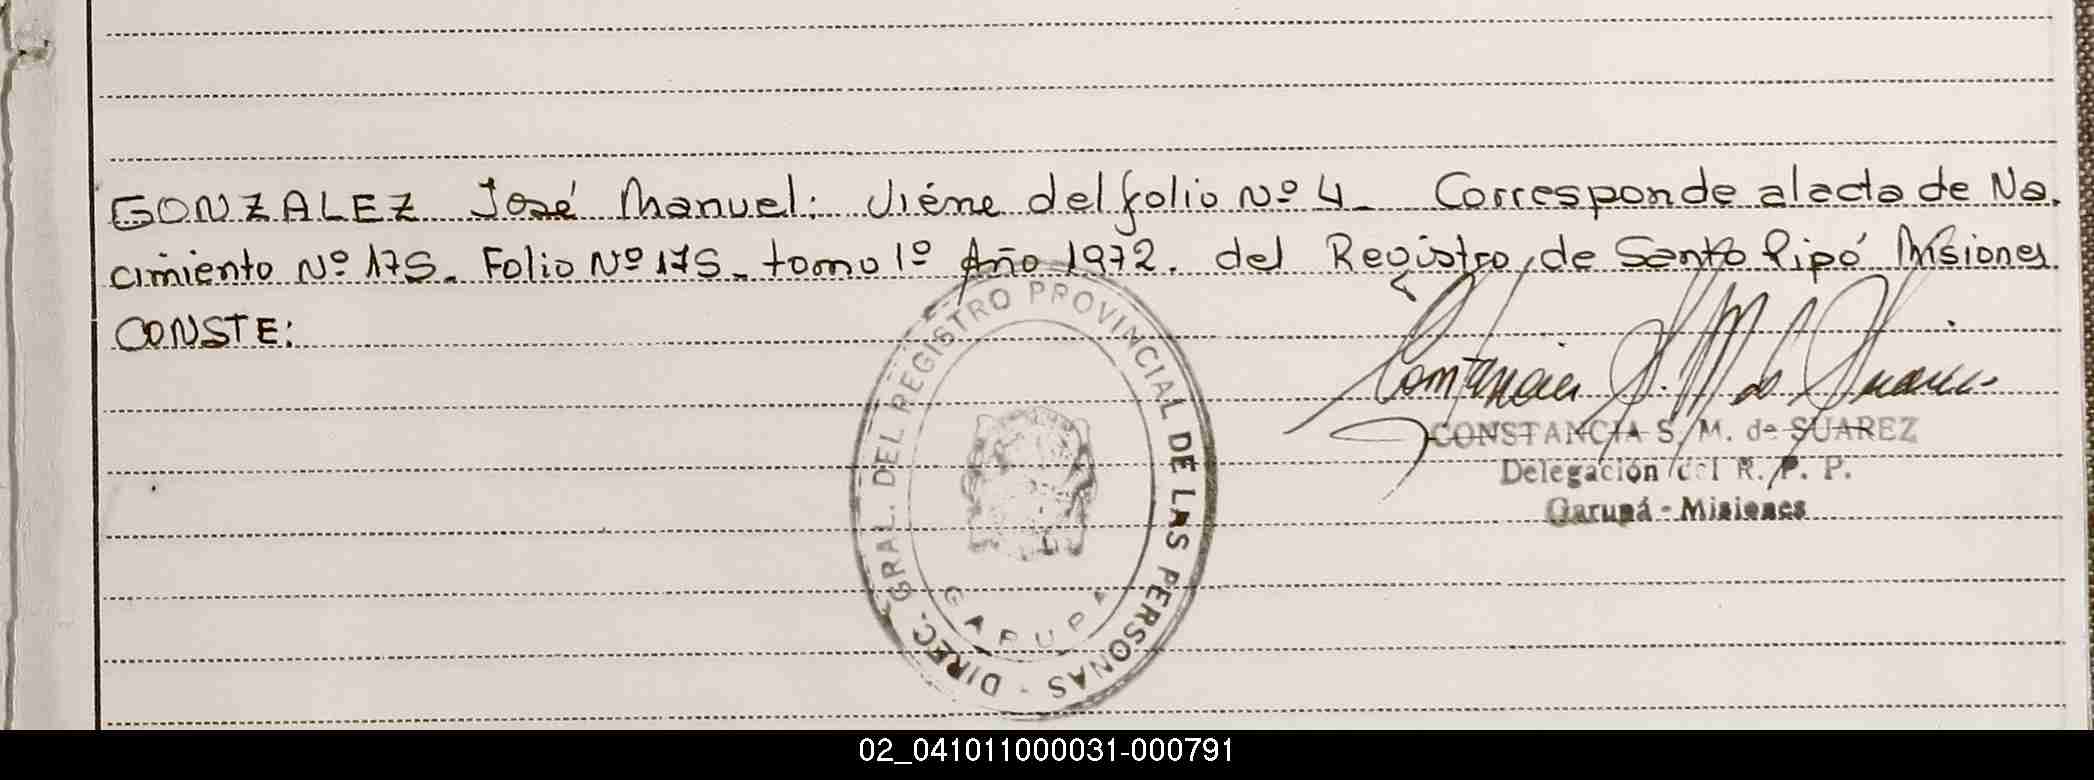 GONZALEZ José Manuel: Viéne del folio Nº 4_ Corresponde al acta de Na.
cimiento Nº 175_ Folio Nº 175_ tomo 1º Año 1972. del Registro, de Santo Pipó Misiones
CONSTE:
DIREC. GRAL. DEL REGISTRO PROVINCIAL DE LAS PERSONAS -
GARUPA
Constancia S. M. de Suarez
CONSTANCIA S. M. de SUAREZ
Delegación del R. P. P.
Garupá - Misiones
02_041011000031-000791